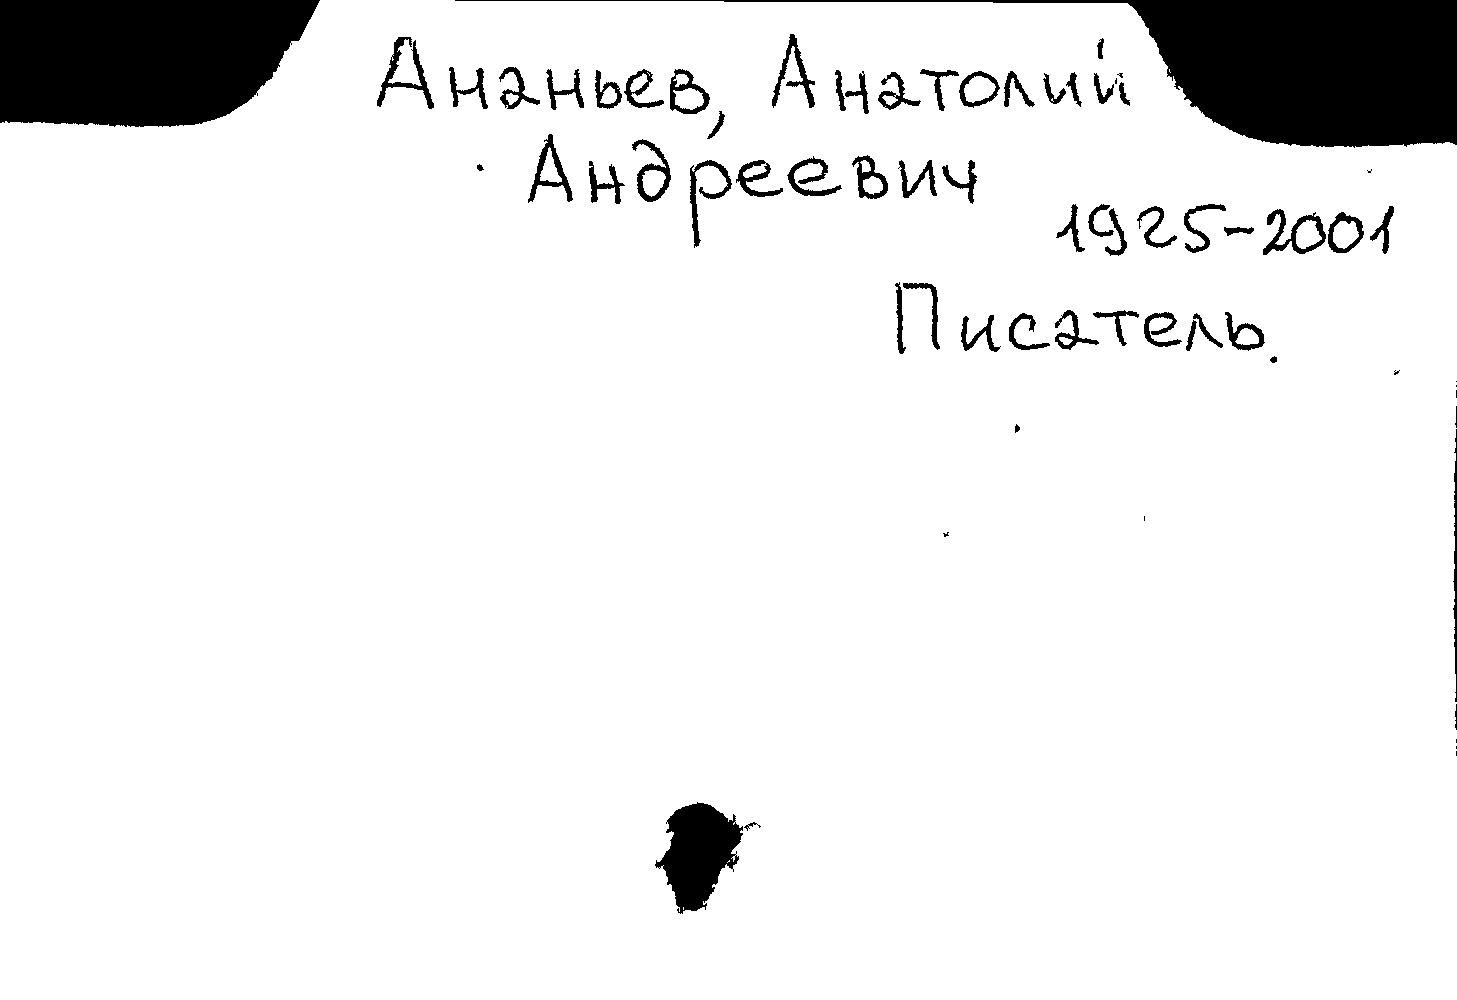 Ананьев, Анатолий
Андреевич
1925-2001
Писатель.